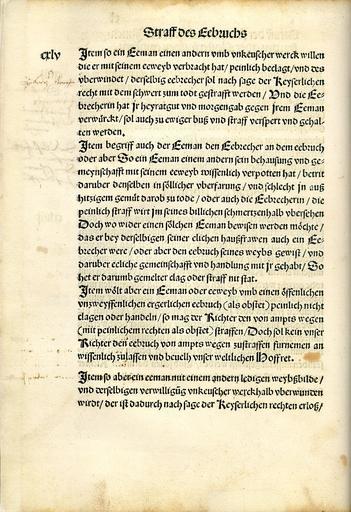 Straff des Eebruchs
cxlv
Jtem so ein Eeman einen andern vmb vnkeuscher werck willen
die er mit seinem eeweyb verbracht hat / peinlich beclagt / vnd des
vberwindet / derselbig eebrecher sol nach sage der Keyserlichen
recht mit dem schwert zum todt gestrafft werden / Vnd die Ee-
brecherin hat jr heyratgut vnd morgengab gegen jrem Eeman
verwürckt / sol auch zu ewiger buß vnd straff versperrt vnd gehal-
ten werden.
Jtem begriff auch der Eeman den Eebrecher an dem eebruch
oder aber So ein Eeman einem andern sein behausung vnd ge-
meynschafft mit seinem eeweyb wissenlich verpotten hat / betrit
daruber denselben in söllicher vberfarung / vnd schlecht jn auß
hitzigem gemüt darob zu tode / oder auch die Eebrecherin / die
peinlich straff wirt jm seines billichen schmertzenhalb vbersehen
Doch wo wider einen sölchen Eeman bewisen werden möchte /
das er bey derselbigen seiner elichen haußfrawen auch ein Ee-
brecher were / oder aber den eebruch seines weybs gewist / vnd
daruber eeliche gemeinschafft vnd handlung mit jr gehabt / So
het er darumb gemelter clag oder straff nit stat.
Jtem wölt aber ein Eeman oder eeweyb vmb einen öffenlichen
vnzweyffenlichen ergerlichen eebruch (als obstet) peinlich nicht
clagen oder handeln / so mag der Richter den von ampts wegen
(mit peinlichem rechten als obstet) straffen / Doch sol kein vnser
Richter den eebruch von ampts wegen zustraffen furnemen an
wissenlich zulassen vnd beuelh vnser weltlichen Hoffret.
Jtem so aber ein eeman mit einem andern ledigen weybßbilde /
vnd derselbigen verwilligūg vnkeuscher werckhalb vberwunden
wirdt / der ist dadurch nach sage der Keyserlichen rechten erloß /